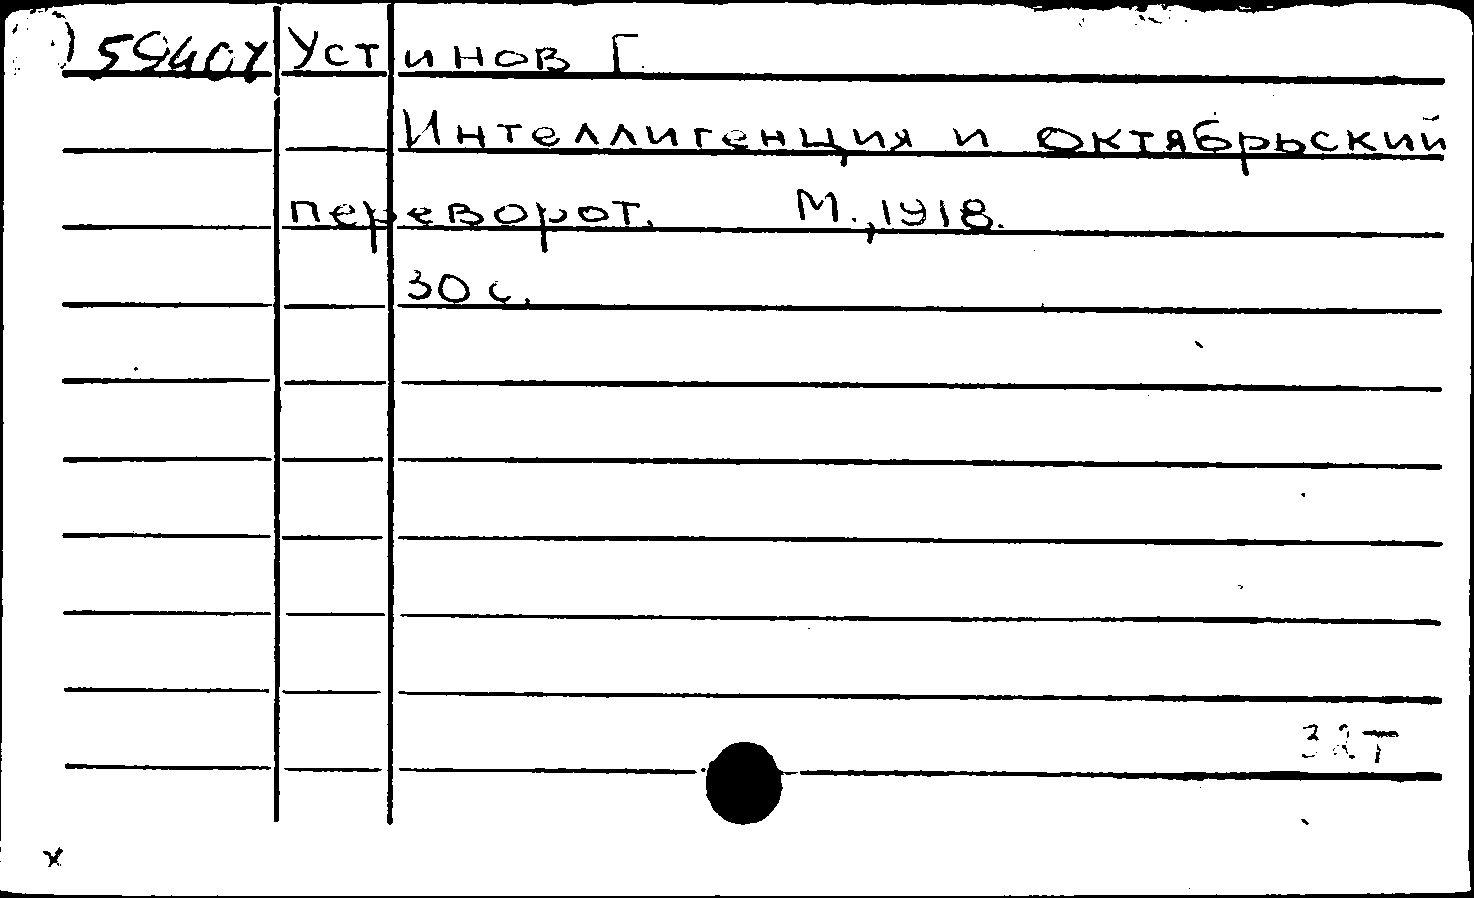 Устинов Г.
Интеллигенция и октябрьский
переворот. М., 1918.
30 с.
32т
х